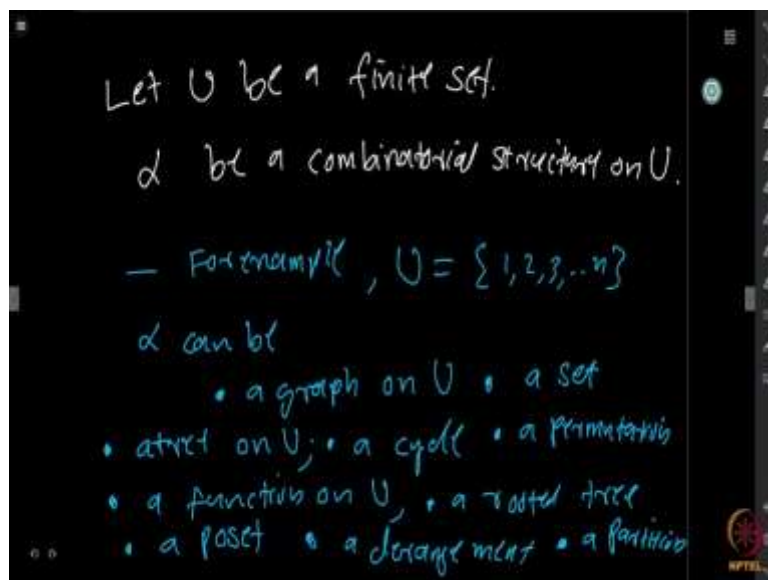 Let U be a finite set.
α be a combinatorial structure on U.
— For example, U = {1,2,3,..n}
α can be
• a graph on U • a set
• a tree on U; • a cycle • a permutation
• a function on U, • a rooted tree
• a poset • a derangement • a Partition
NPTEL